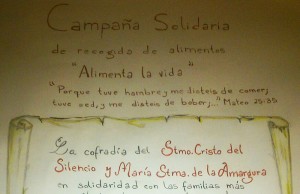 Campaña Solidaria
de recogida de alimentos
"Alimenta la vida"
"Porque tuve hambre y me disteis de comer;
tuve sed, y me disteis de beber;..." Mateo 25:35
La cofradía del Stmo. Cristo del
Silencio y María Stma. de la Amargura
en solidaridad con las familias más